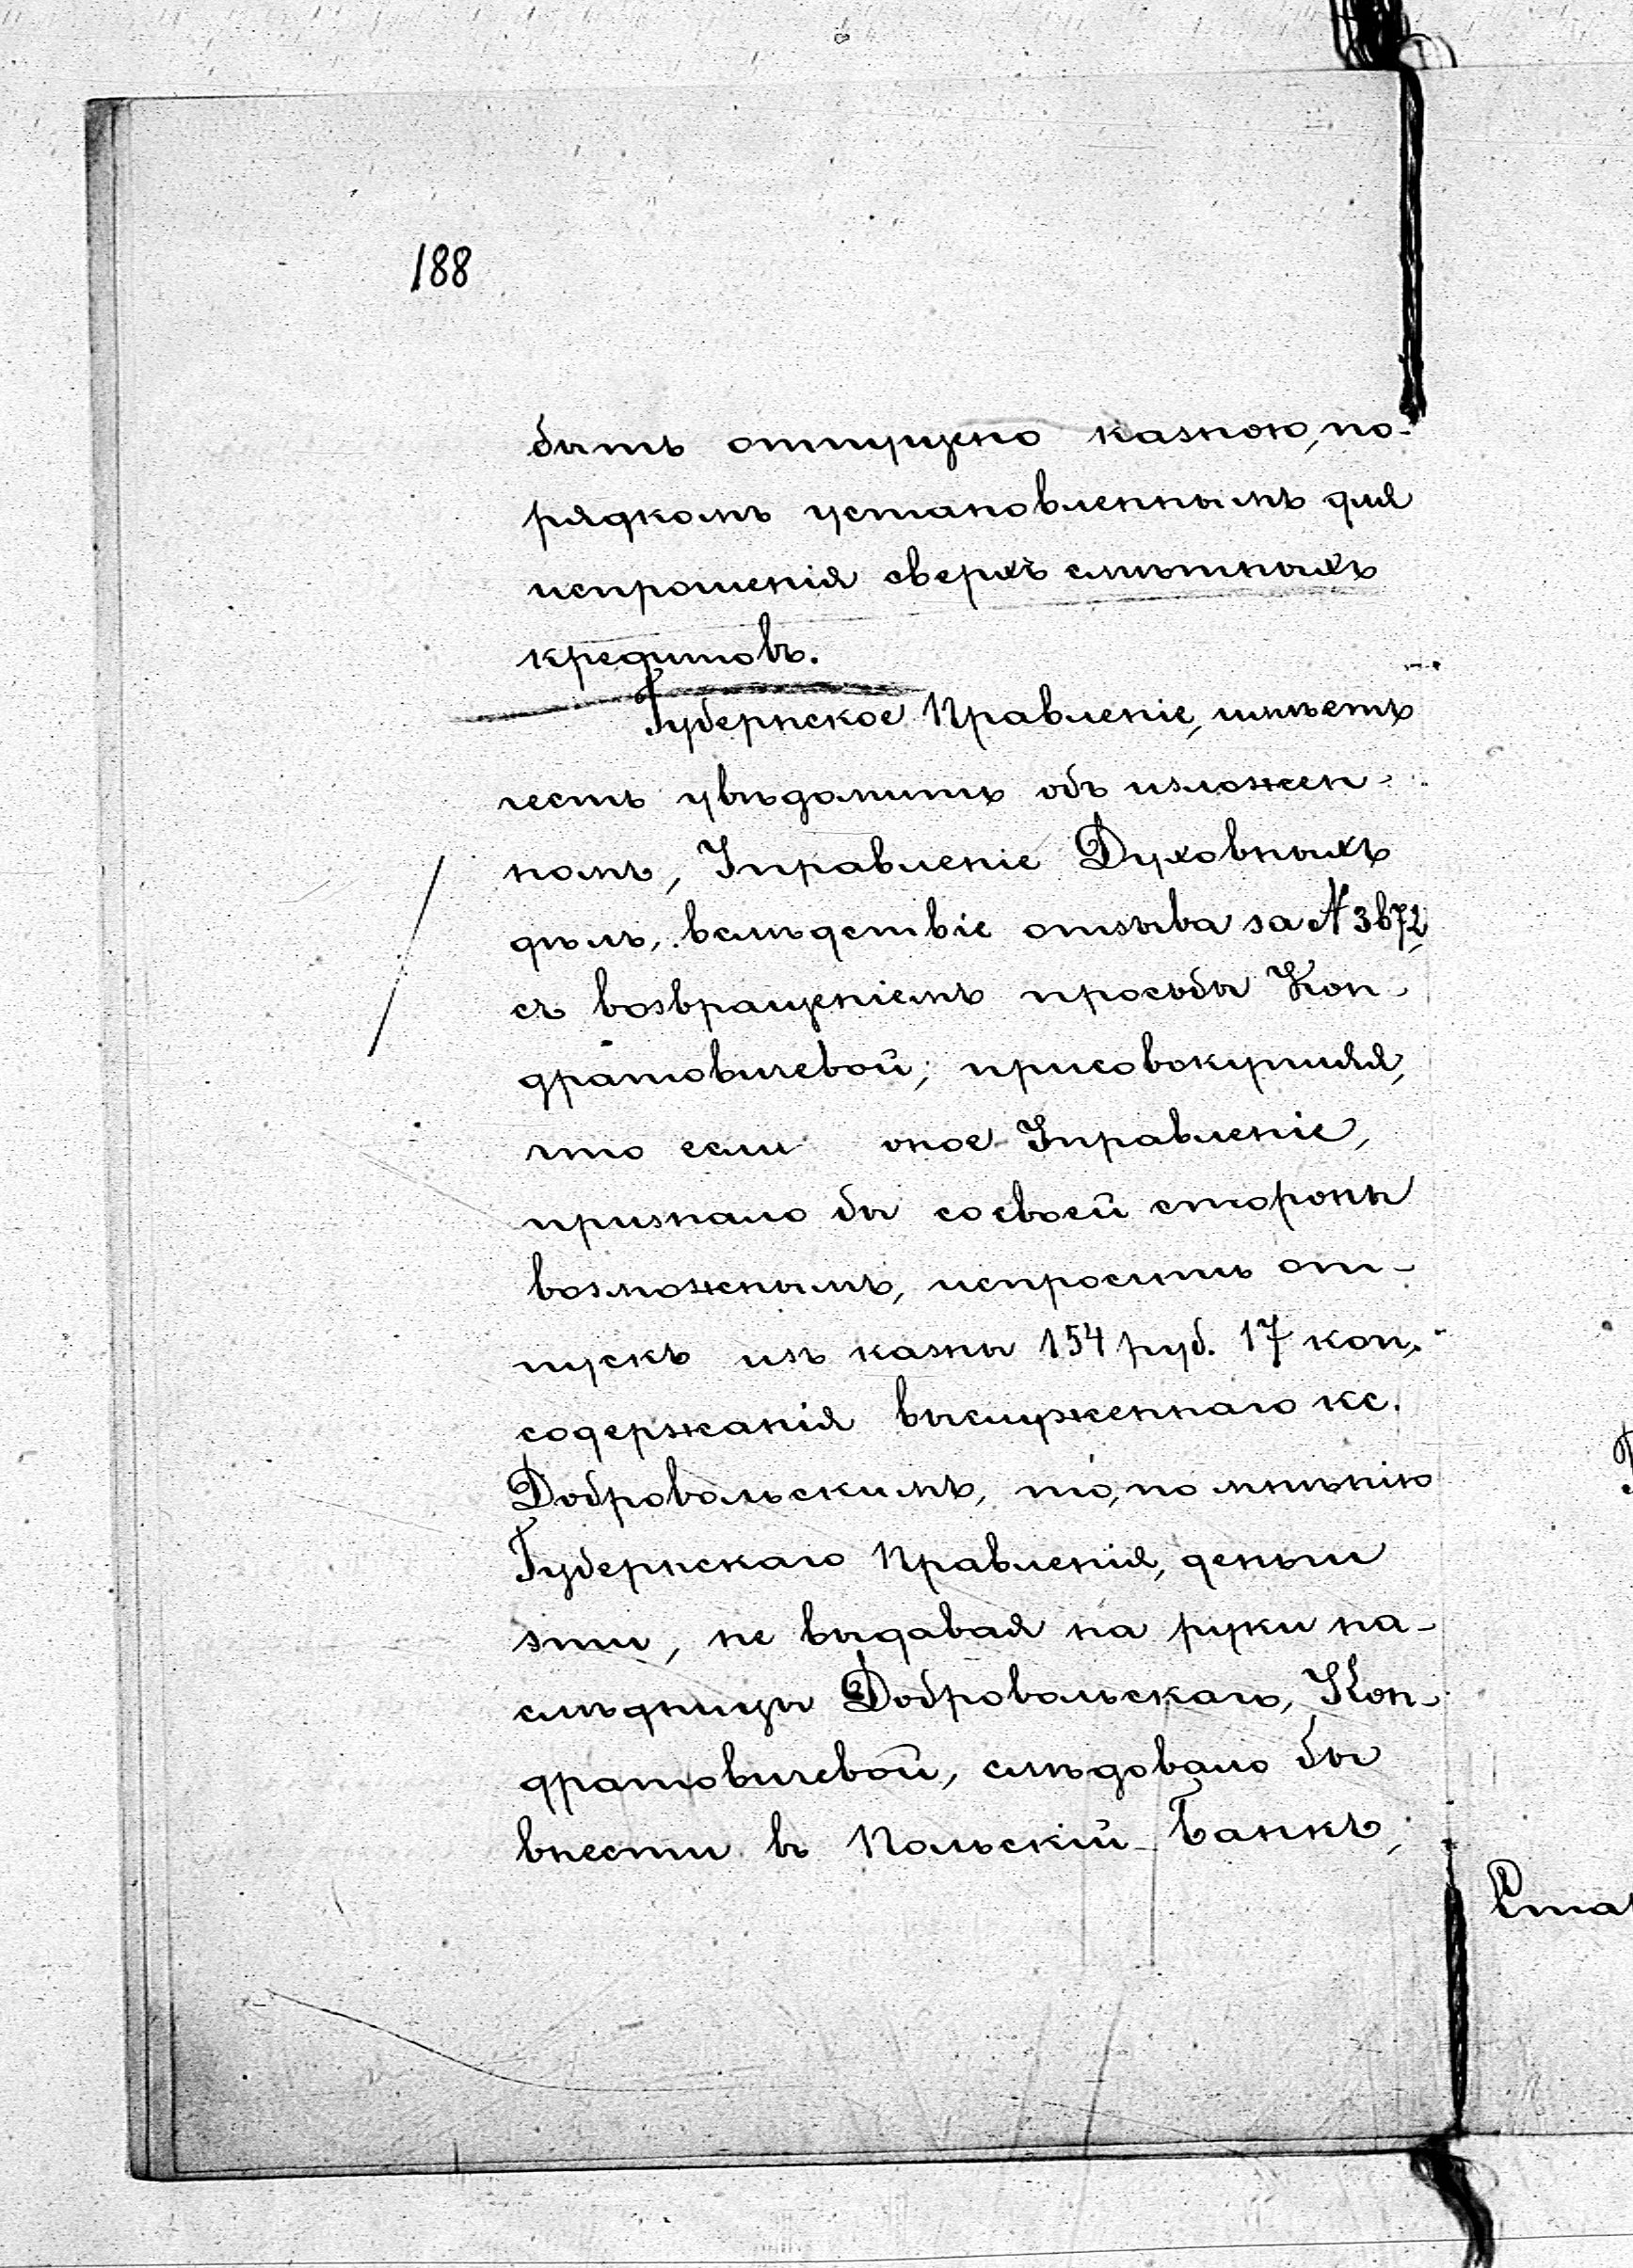 188
быть отпущено казною, по-
рядкомъ установленнымъ для
испрошенія сверхъ смѣтныхъ
кредитовъ.
Губернское Правленіе, имѣетъ
честь увѣдомить объ изложен-
номъ, Управленіе Духовныхъ
дѣлъ, вслѣдствіе отзыва за № 3672,
съ возвращеніемъ просьбы Кон-
дратовичевой; присовокупляя,
что если оное Управленіе,
признало бы со своей стороны
возможнымъ, испросить от-
пускъ изъ казны 154 руб. 17 коп.
содержанія выслуженнаго кс.
Добровольскимъ, то, по мнѣнію
Губернскаго Правленія, деньги
эти, не выдавая на руки на-
слѣдницы Добровольскаго, Кон-
дратовичевой, слѣдовало бы
внести въ Польскій Банкъ,